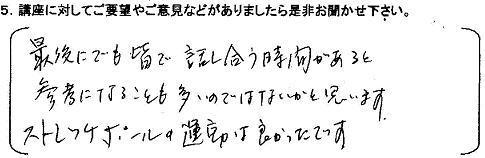 5. 講座に対してご要望やご意見などがありましたら是非お聞かせ下さい。
最後にでも皆で話し合う時間があると
参考になることも多いのではないかと思います
ストレッチポールの運動は良かったです